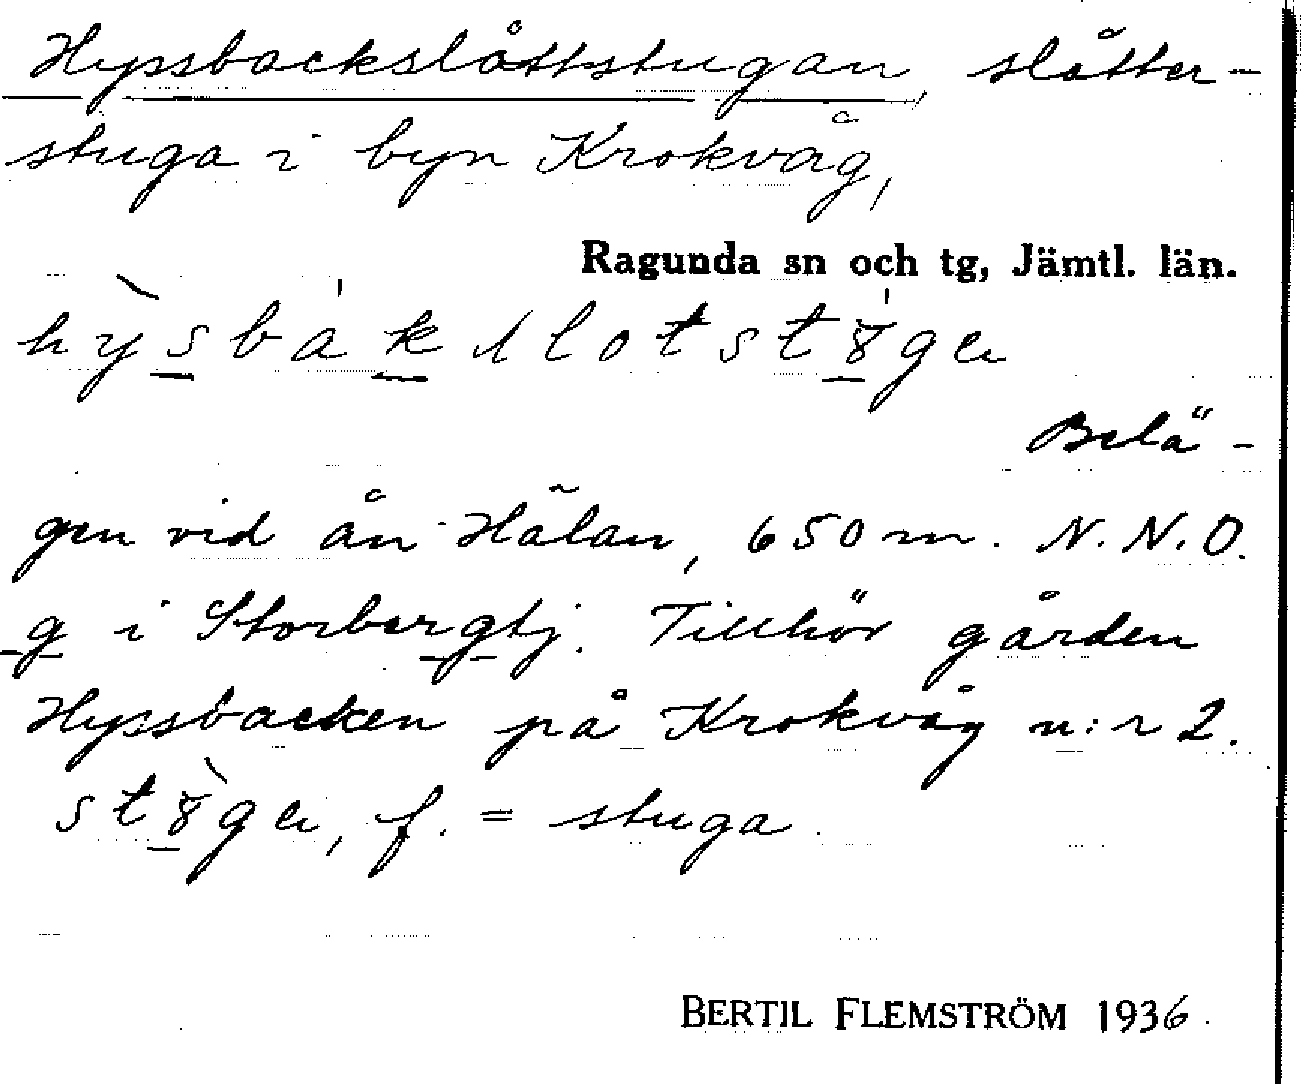 Hyssbackslåttstugan, slåtter-
stuga i byn Krokvåg,
Ragunda sn och tg, Jämtl. län.
Belä-
gen vid ån Hälan, 650 m. N.N.O.
g i Storbergtj. Tillhör gården
Hyssbacken på Krokvåg n:r 2.
f. = stuga
BERTIL FLEMSTRÖM 1936